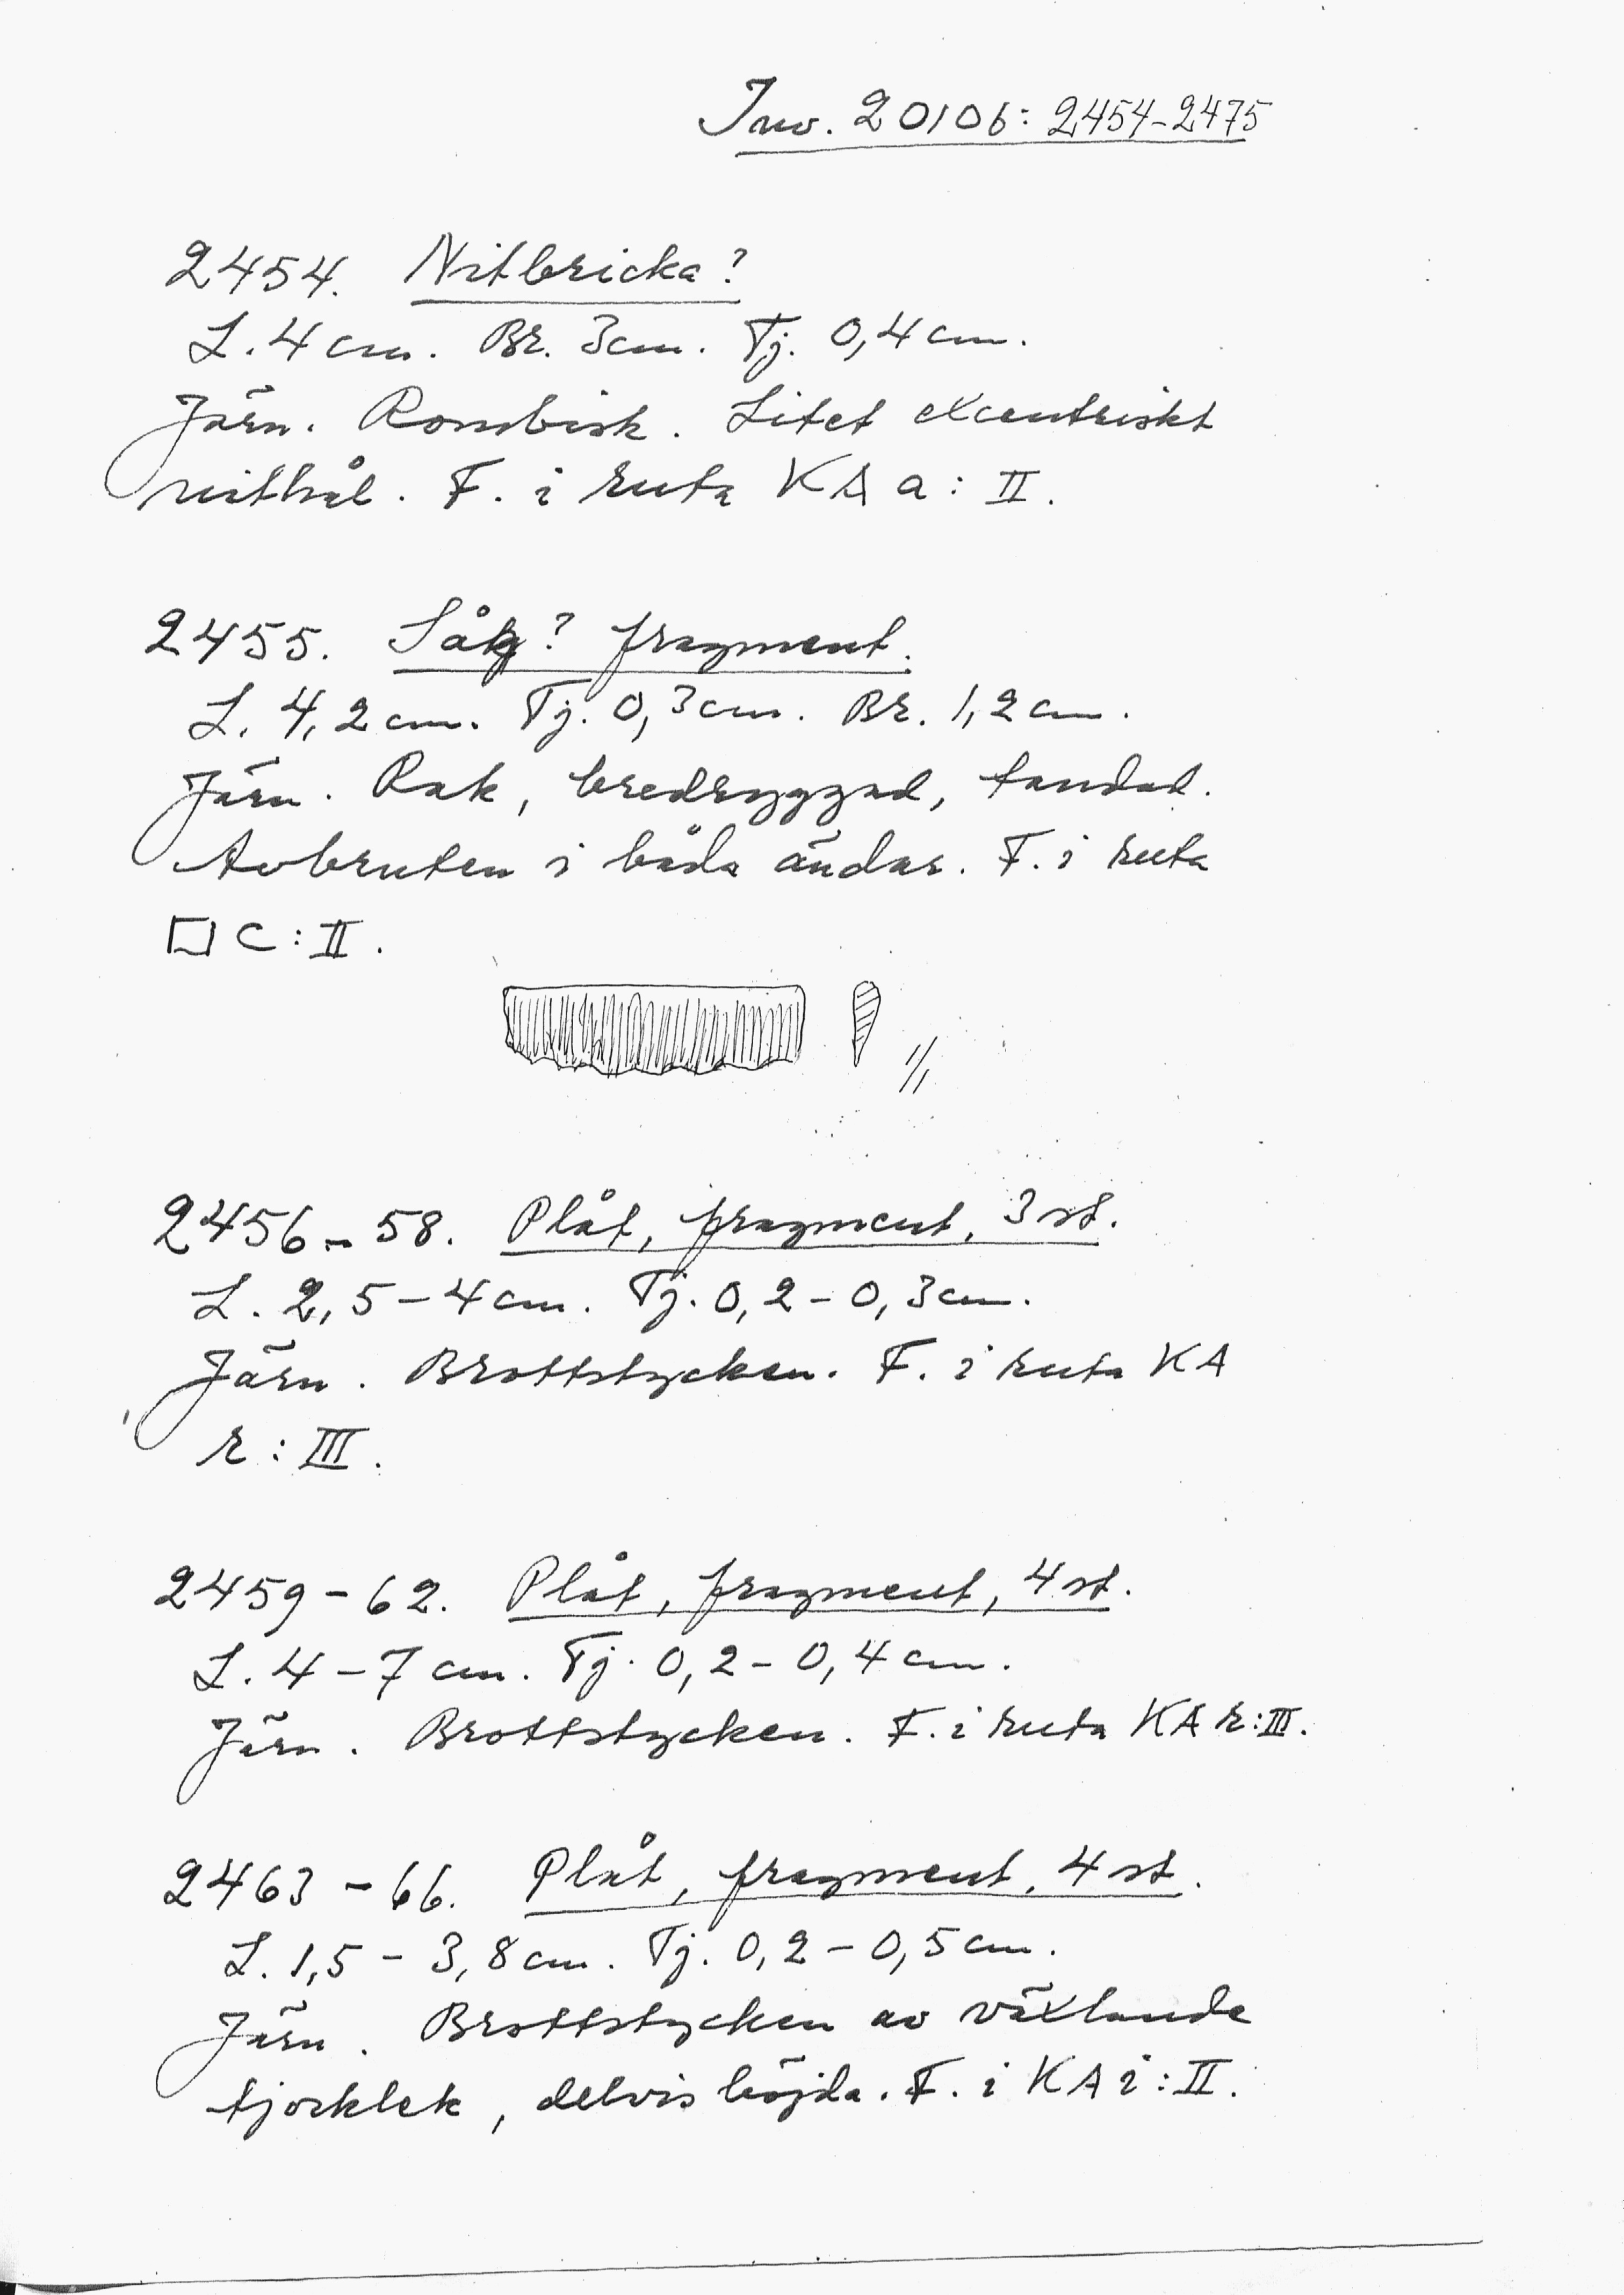 Inv. 20106: 2454-2475
2454. Nitbricka?
L. 4 cm. Br. 3 cm. Tj. 0,4 cm.
Järn. Rombisk. Litet excentriskt
nithål. F. i ruta KA a: II.
2455. Såg? fragment.
L. 4,2 cm. Tj. 0,3 cm. Br. 1,2 cm.
Järn. Rak, bredryggad, tandad.
Avbruten i båda ändar. F. i ruta
□ C: II.
1/1
2456-58. Plåt, fragment, 3 st.
L. 2,5-4 cm. Tj. 0,2-0,3 cm.
Järn. Brottstycken. F. i ruta KA
r: III.
2459-62. Plåt, fragment, 4 st.
L. 4-7 cm. Tj. 0,2-0,4 cm.
Järn. Brottstycken. F. i ruta KA r: III.
2463-66. Plåt, fragment, 4 st.
L. 1,5-3,8 cm. Tj. 0,2-0,5 cm.
Järn. Brottstycken av växlande
tjocklek, delvis böjda. F. i KA i: II.